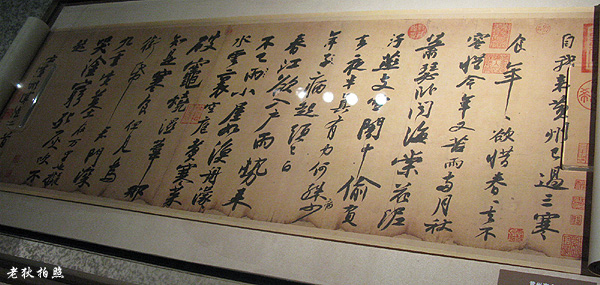 自我來黃州已過三寒
食年、欲惜春、去不
容惜今年又苦雨兩月秋
蕭瑟臥聞海棠花泥
汙燕支雪闇中偷負
去夜半真有力何殊病少
年子病起頭已白
春江欲入戶雨勢來
不已雨小屋如漁舟濛、
水雲裏空庖煮寒菜
破竈燒濕葦那
知是寒食但見烏
銜帋君門深
九重墳墓在万里也擬
哭塗窮死灰吹不
起
右黃州寒食
老狄拍照